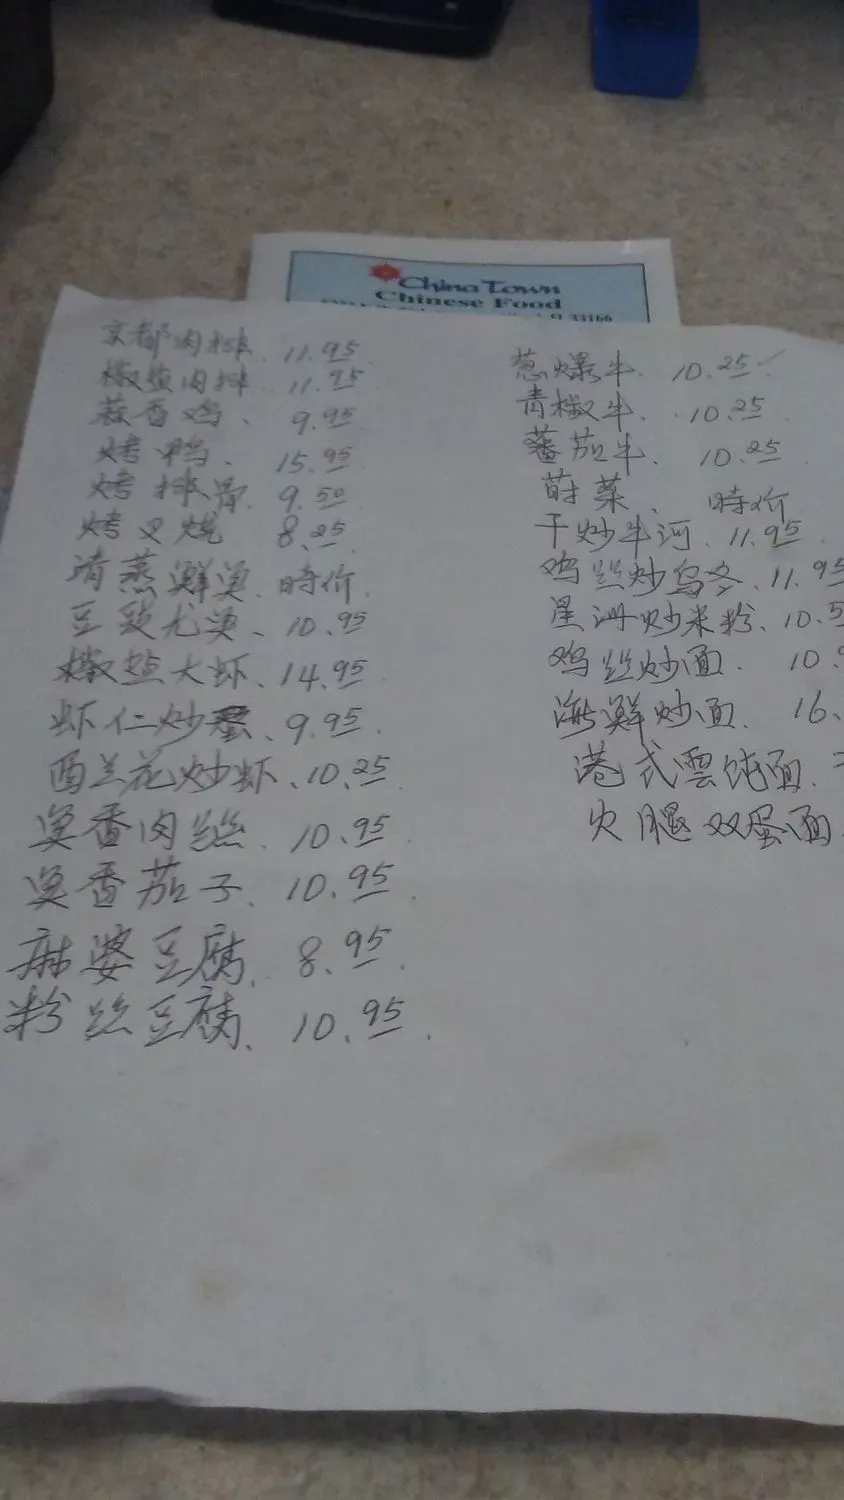 China Town
Chinese Food
33166
京都肉排. 11.95
椒盐肉排. 11.95
蒜香鸡、 9.95
烤鸭、 15.95
烤排骨. 9.50
烤叉烧 8.25
清蒸鲜鱼. 時价.
豆豉尤鱼、10.95
椒盐大虾、14.95
虾仁炒蛋、9.95.
西兰花炒虾、10.25
鱼香肉丝. 10.95
鱼香茄子. 10.95
麻婆豆腐. 8.95.
粉丝豆腐. 10.95.
葱爆牛. 10.25
青椒牛. 10.25
蕃茄牛. 10.25
時菜、 時价
干炒牛河. 11.95
鸡丝炒乌冬. 11.95
星洲炒米粉、10.5
鸡丝炒面. 10.9
海鲜炒面. 16.
港式雲饨面.
火腿双蛋面.